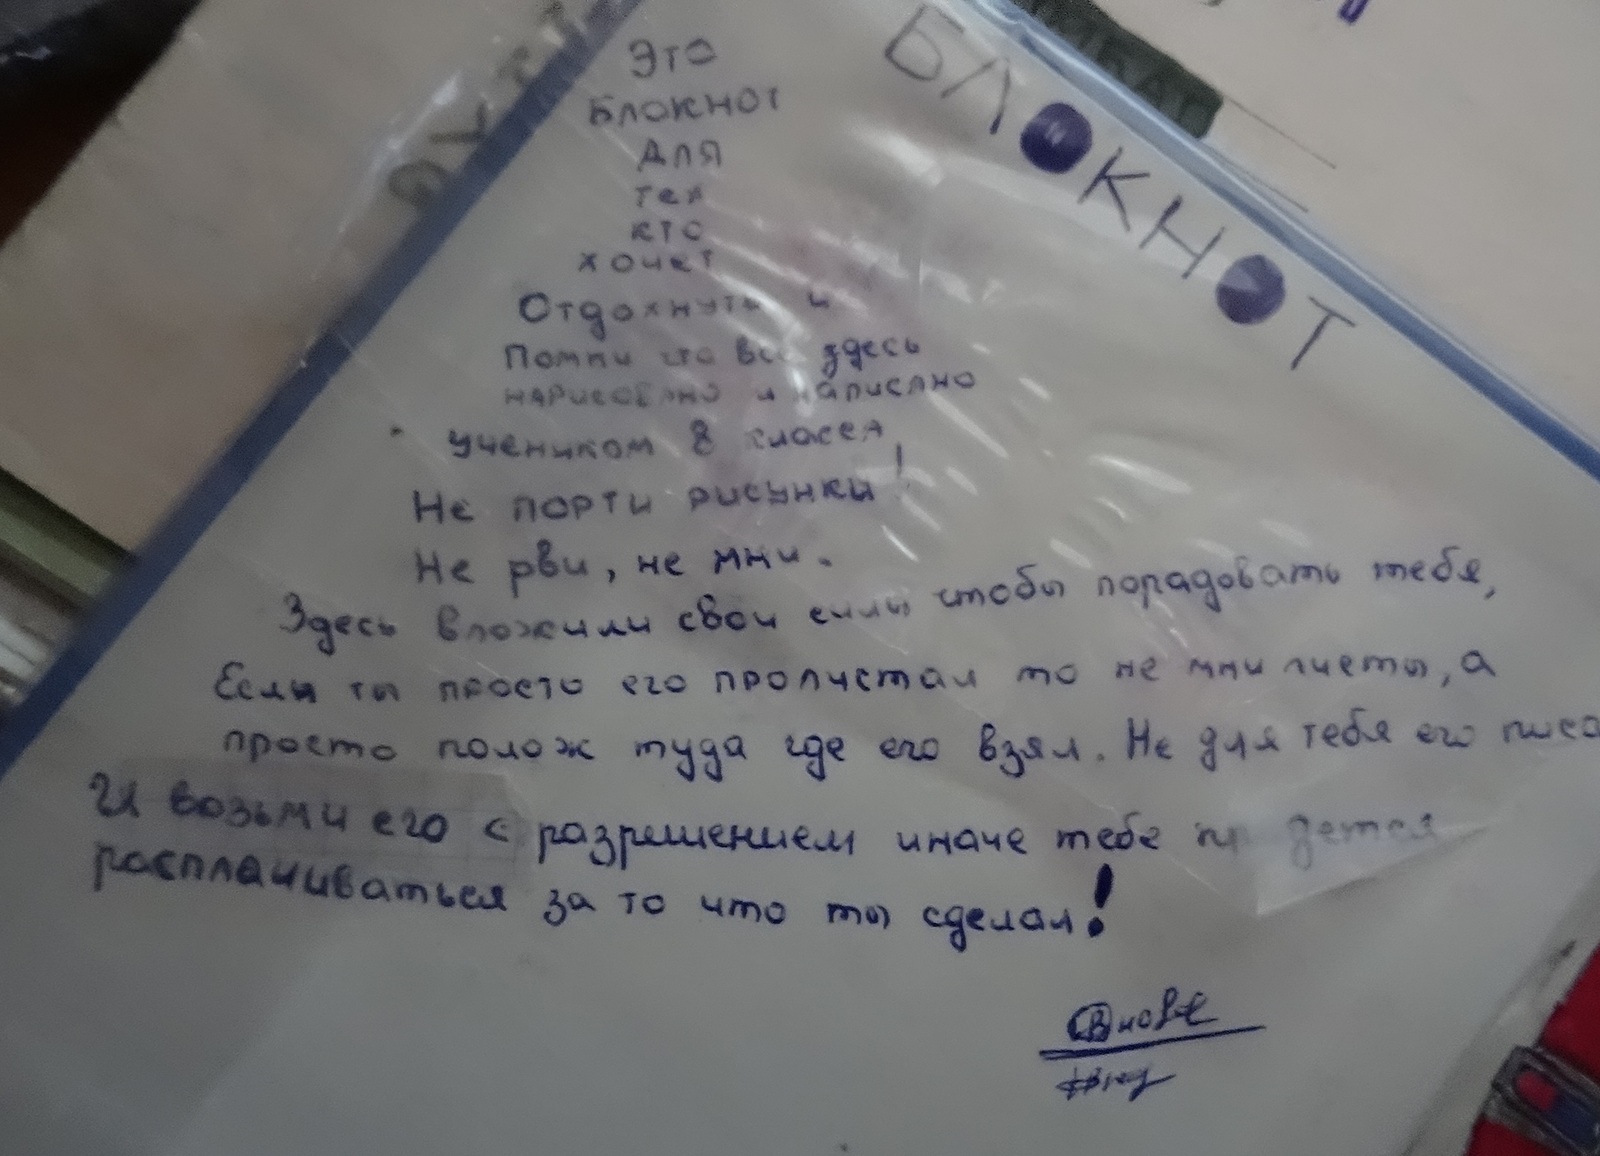 БЛОКНОТ
Это
Блокнот
Для
тех
кто
хочет
Отдохнуть и
Помни что всё здесь
нарисовано и написано
учеником 8 класса
Не порти рисунки!
Не рви, не мни.
Здесь вложили свои силы чтобы порадовать тебя,
Если ты просто его пролистал то не мни листы, а
просто полож туда где его взял. Не для тебя его писа
И возьми его с разрешением иначе тебе пр дется
расплачиваться за то что ты сделал!